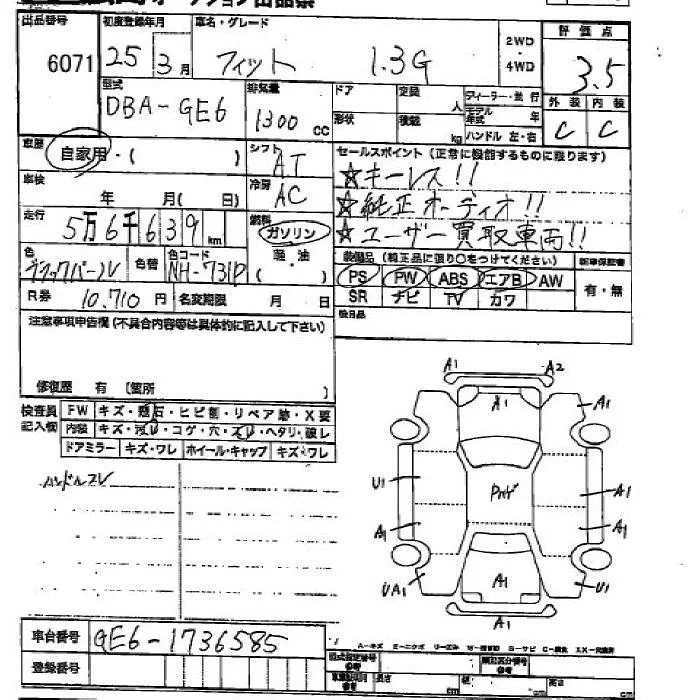 出品番号 初度登録年月 車名・グレード 評価点
6071 25 3月 フィット 1.3G 2WD・4WD 3.5
型式 排気量 ドア 定員 人 ディーラー・並行 外装 内装
DBA-GE6 1300 CC 形状 積載 kg モデル年式 年 ハンドル 左・右 C C
車歴 自家用・( ) シフト AT セールスポイント (正常に機能するものに限ります)
☆キーレス!!
車検 年 月(日) 冷房 AC ☆純正オーディオ!!
走行 5万6千639km 燃料 ガソリン ☆ユーザー買取車両!!
軽・油 ( )
色 ブラックパール 色替 色コード NH-731P
装備品 (純正品に限り○をつけてください) 新車保証書
PS PW ABS エアB AW 有・無
SR ナビ TV カワ
R券 10.710円 名変期限 月 日
注意事項申告欄 (不具合内容等は具体的に記入して下さい)
修復歴 有 (箇所 )
検査員記入欄 FW キズ・飛石・ヒビ割・リペア跡・X要
内装 キズ・汚レ・コゲ・穴・スレ・ヘタリ・破レ
ドアミラー キズ・ワレ ホイール・キャップ キズ・ワレ
ハンドルスレ
A1 A2
A1 A1
U1 A1
A1 A1
UA1 A1 U1
A1
車台番号 GE6-1736585
登録番号
型式指定番号 類別区分番号
長さ cm 幅 cm 高さ